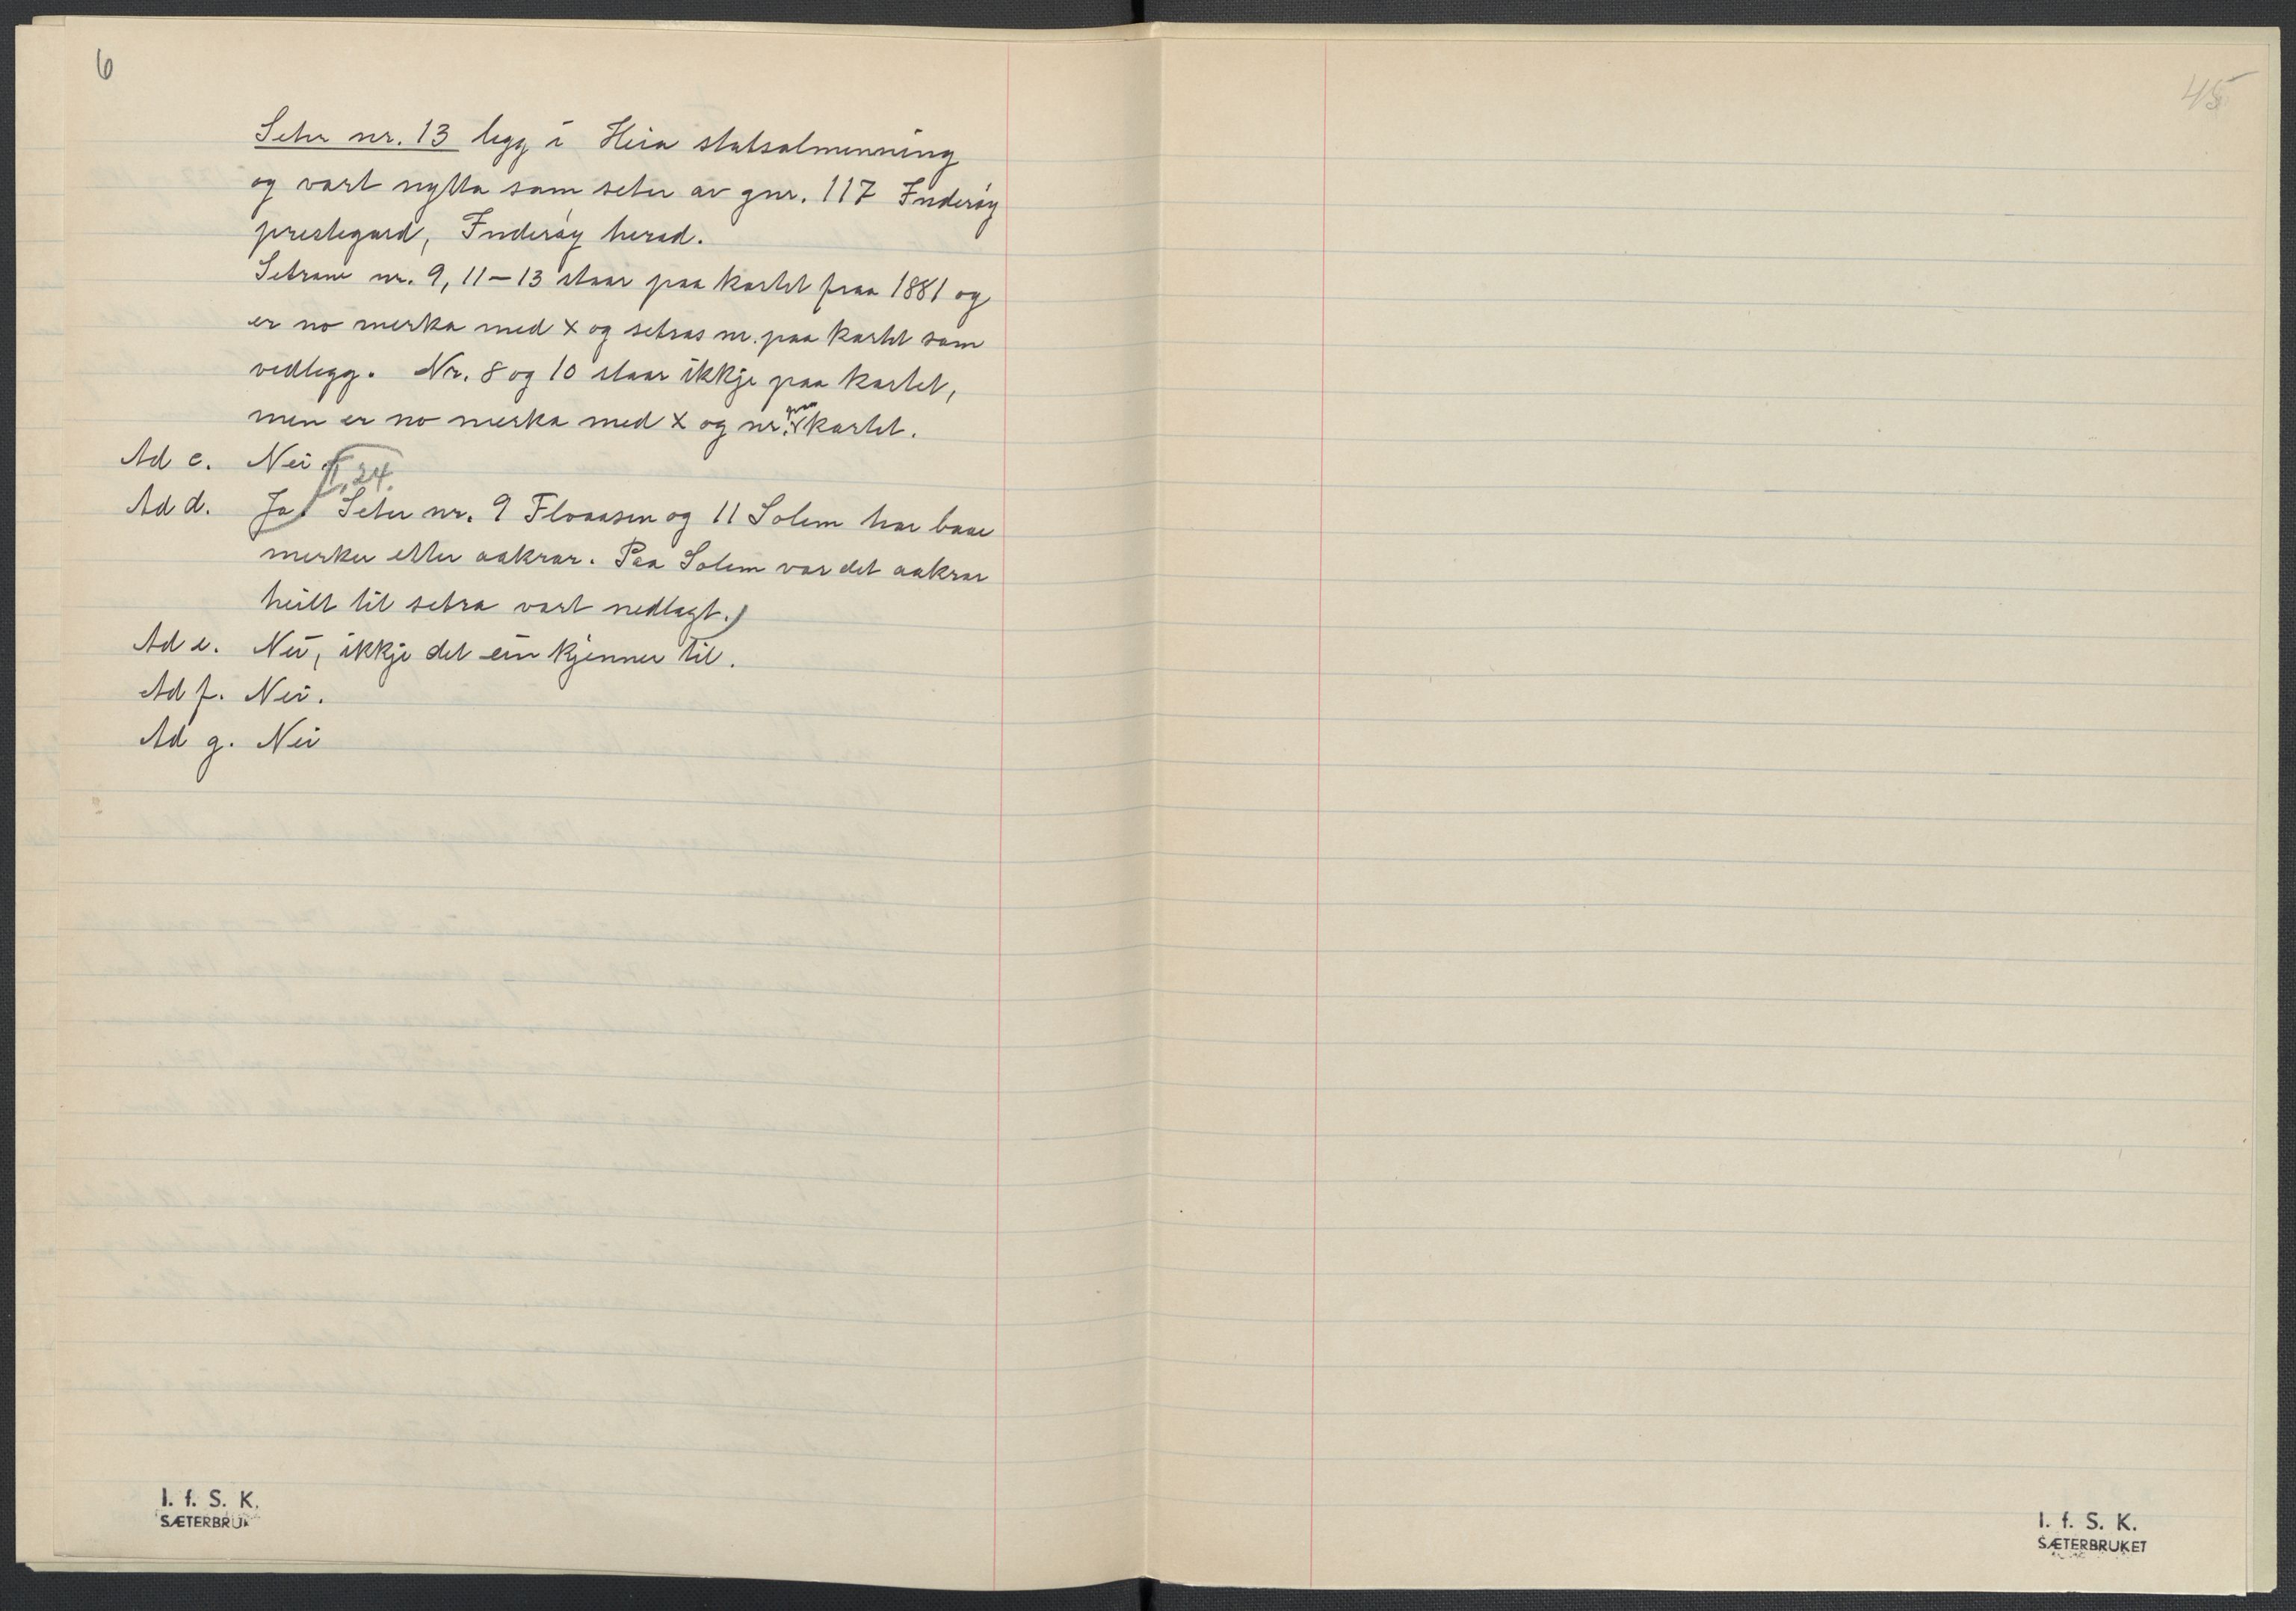 6
Seter nr. 13 legg i Heia statsalmenning
og vart nytta som seter av gnr. 117 Inderøy
prestegard, Inderøy herad.
Setrane nr. 9, 11-13 staar paa kartet fraa 1881 og
er no merka med x og setras nr. paa kartet som
vedlegg. Nr. 8 og 10 staar ikkje paa kartet,
men er no merka med x og nr. paa kartet.
Ad c. Nei.
II, 24.
Ad d. Ja. Seter nr. 9 Floaasen og 11 Solem har baae
merker etter aakrar. Paa Solem var det aakrar
heilt til setra vart nedlagt.)
Ad e. Nei, ikkje det ein kjenner til.
Ad f. Nei.
Ad g. Nei
I. f. S. K.
SÆTERBRUK
45
I. f. S. K.
SÆTERBRUKET